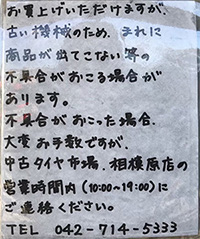 お買上げいただけますが、
古い機械のため、まれに
商品が出てこない等の
不具合がおこる場合が
あります。
不具合がおこった場合、
大変お手数ですが、
中古タイヤ市場 相模原店の
営業時間内(10:00~19:00)に
ご連絡ください。
TEL 042-714-5333